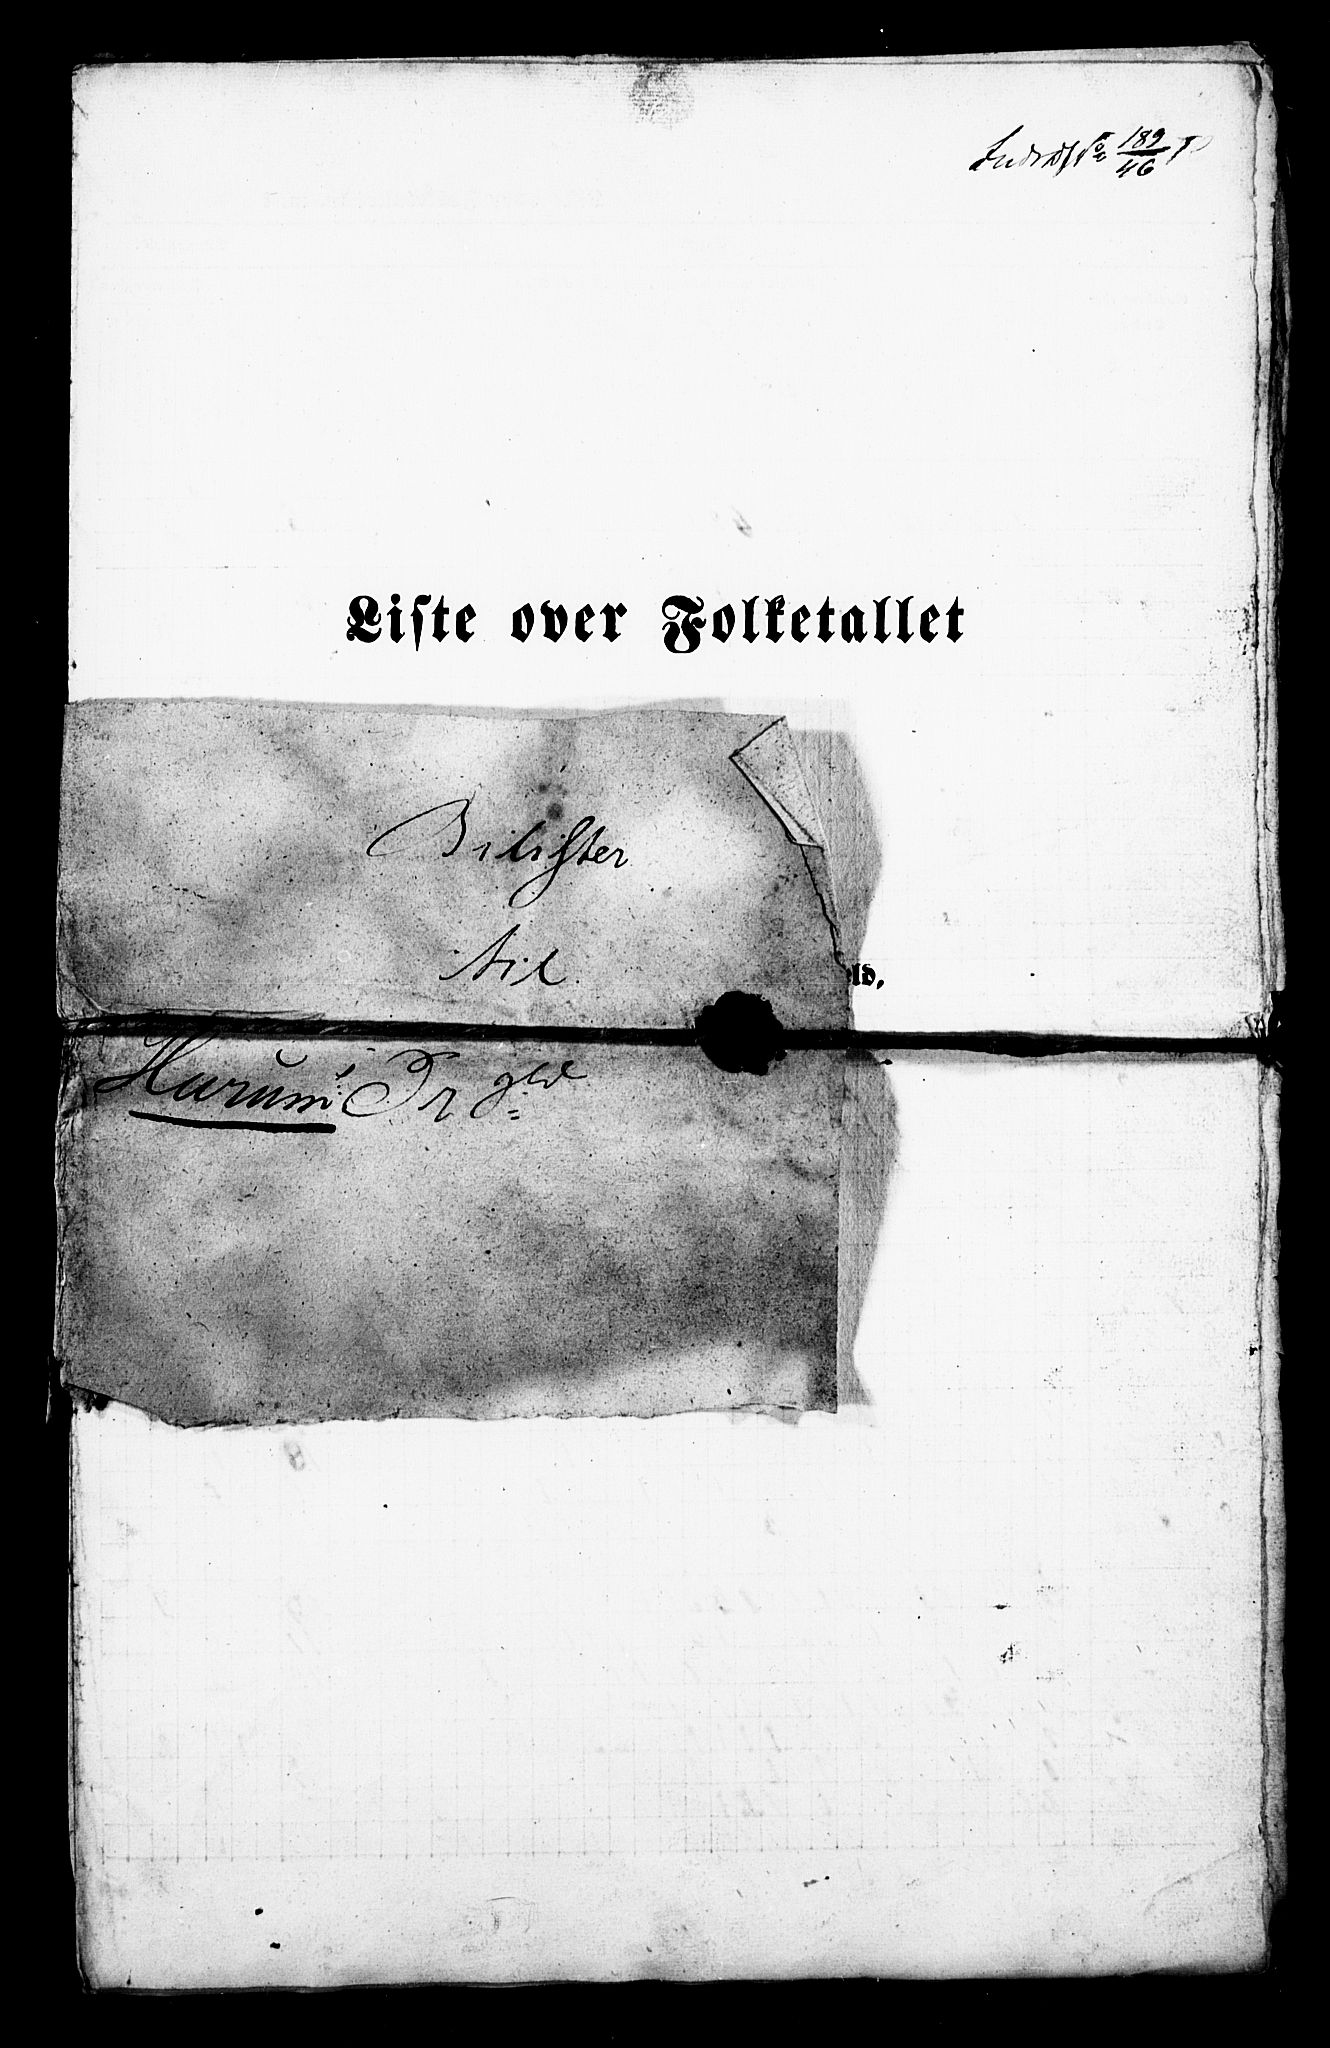 189
46
Liste over Folketallet
Bilister
til
eld.
Harums Pr gld